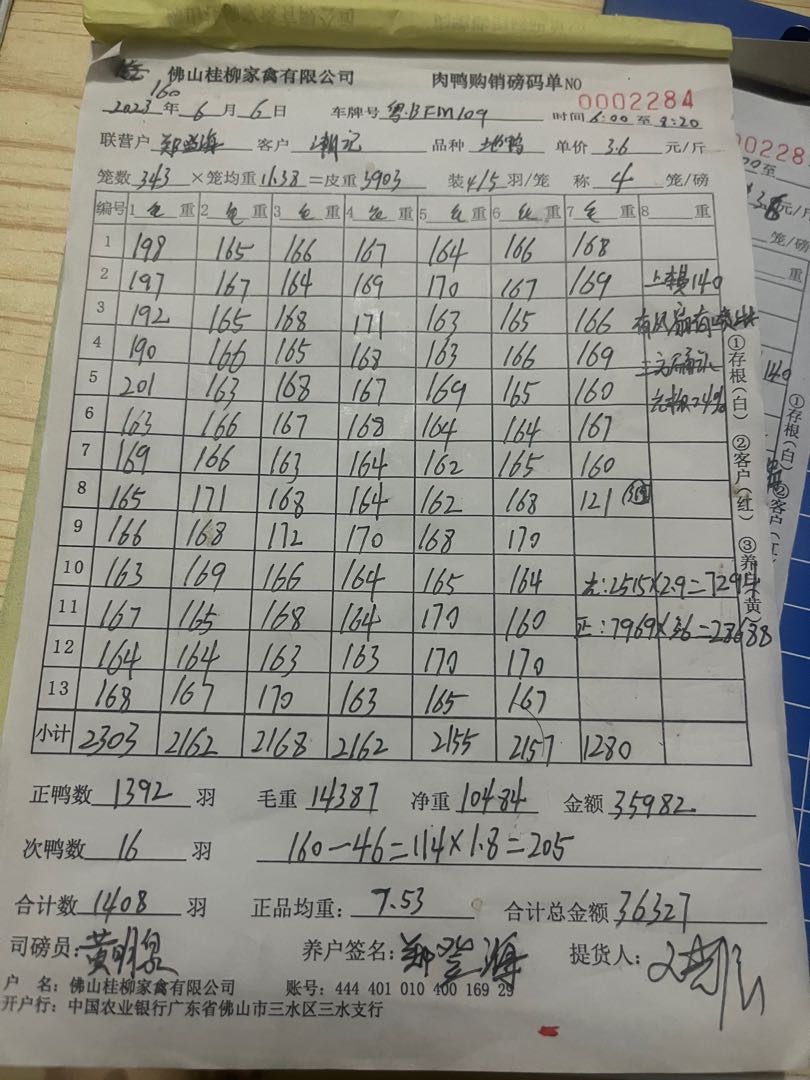 佛山桂柳家禽有限公司 肉鸭购销磅码单NO 0002284
160
2023年6月6日 车牌号 粤BFM109 时间6:00至8:20
联营户 郑 海 客户 潮记 品种 地鸭 单价 3.6 元/斤
笼数 343 ×笼均重 11.38 =皮重 3903 装 4/5 羽/笼 称 4 笼/磅
编号 1 毛 重 2 毛 重 3 毛 重 4 毛 重 5 毛 重 6 毛 重 7 毛 重 8 重
1 198 165 166 167 164 166 168
2 197 167 164 169 170 167 169 140
3 192 165 168 171 163 165 166 有风扇有
4 190 166 165 168 163 166 169
5 201 163 168 167 169 165 160
6 163 166 167 168 164 164 167
7 169 166 163 164 162 165 160
8 165 171 168 164 162 168 121
9 166 168 172 170 168 170
10 163 169 166 164 165 164 :2515×2.9=7294
11 167 165 168 164 170 160 正:7969×3.6=28688
12 164 164 163 163 170 170
13 168 167 170 163 165 167
小计 2303 2162 2168 2162 2155 2157 1280
正鸭数 1392 羽 毛重 14387 净重 10484 金额 35982
次鸭数 16 羽 160-46=114×1.8=205
合计数 1408 羽 正品均重: 7.53 合计总金额 36327
司磅员: 黄明泉 养户签名: 郑 海 提货人:
户 名: 佛山桂柳家禽有限公司 账号: 444 401 010 400 169 29
开户行: 中国农业银行广东省佛山市三水区三水支行
①存根(白) ②客户(红) ③养 (黄)
00228
元/斤
笼/磅
重
140
①存根(白) ②客户(红